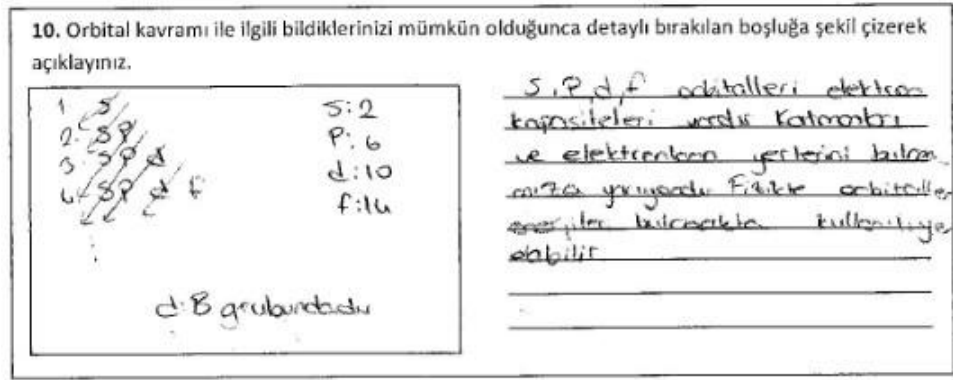 10. Orbital kavramı ile ilgili bildiklerinizi mümkün olduğunca detaylı bırakılan boşluğa şekil çizerek
açıklayınız.
1. S
2. S P
3 S P d
4 S P d f
S:2
P:6
d:10
f:14
d:B grubundadır
S,P,d,f orbitalleri elektron
kapasiteleri vardır Katmanları
ve elektronların yerlerini bulma
mıza yarıyordu Fizikte orbitaller
enerjiler bulmakta kullanılıyor
olabilir